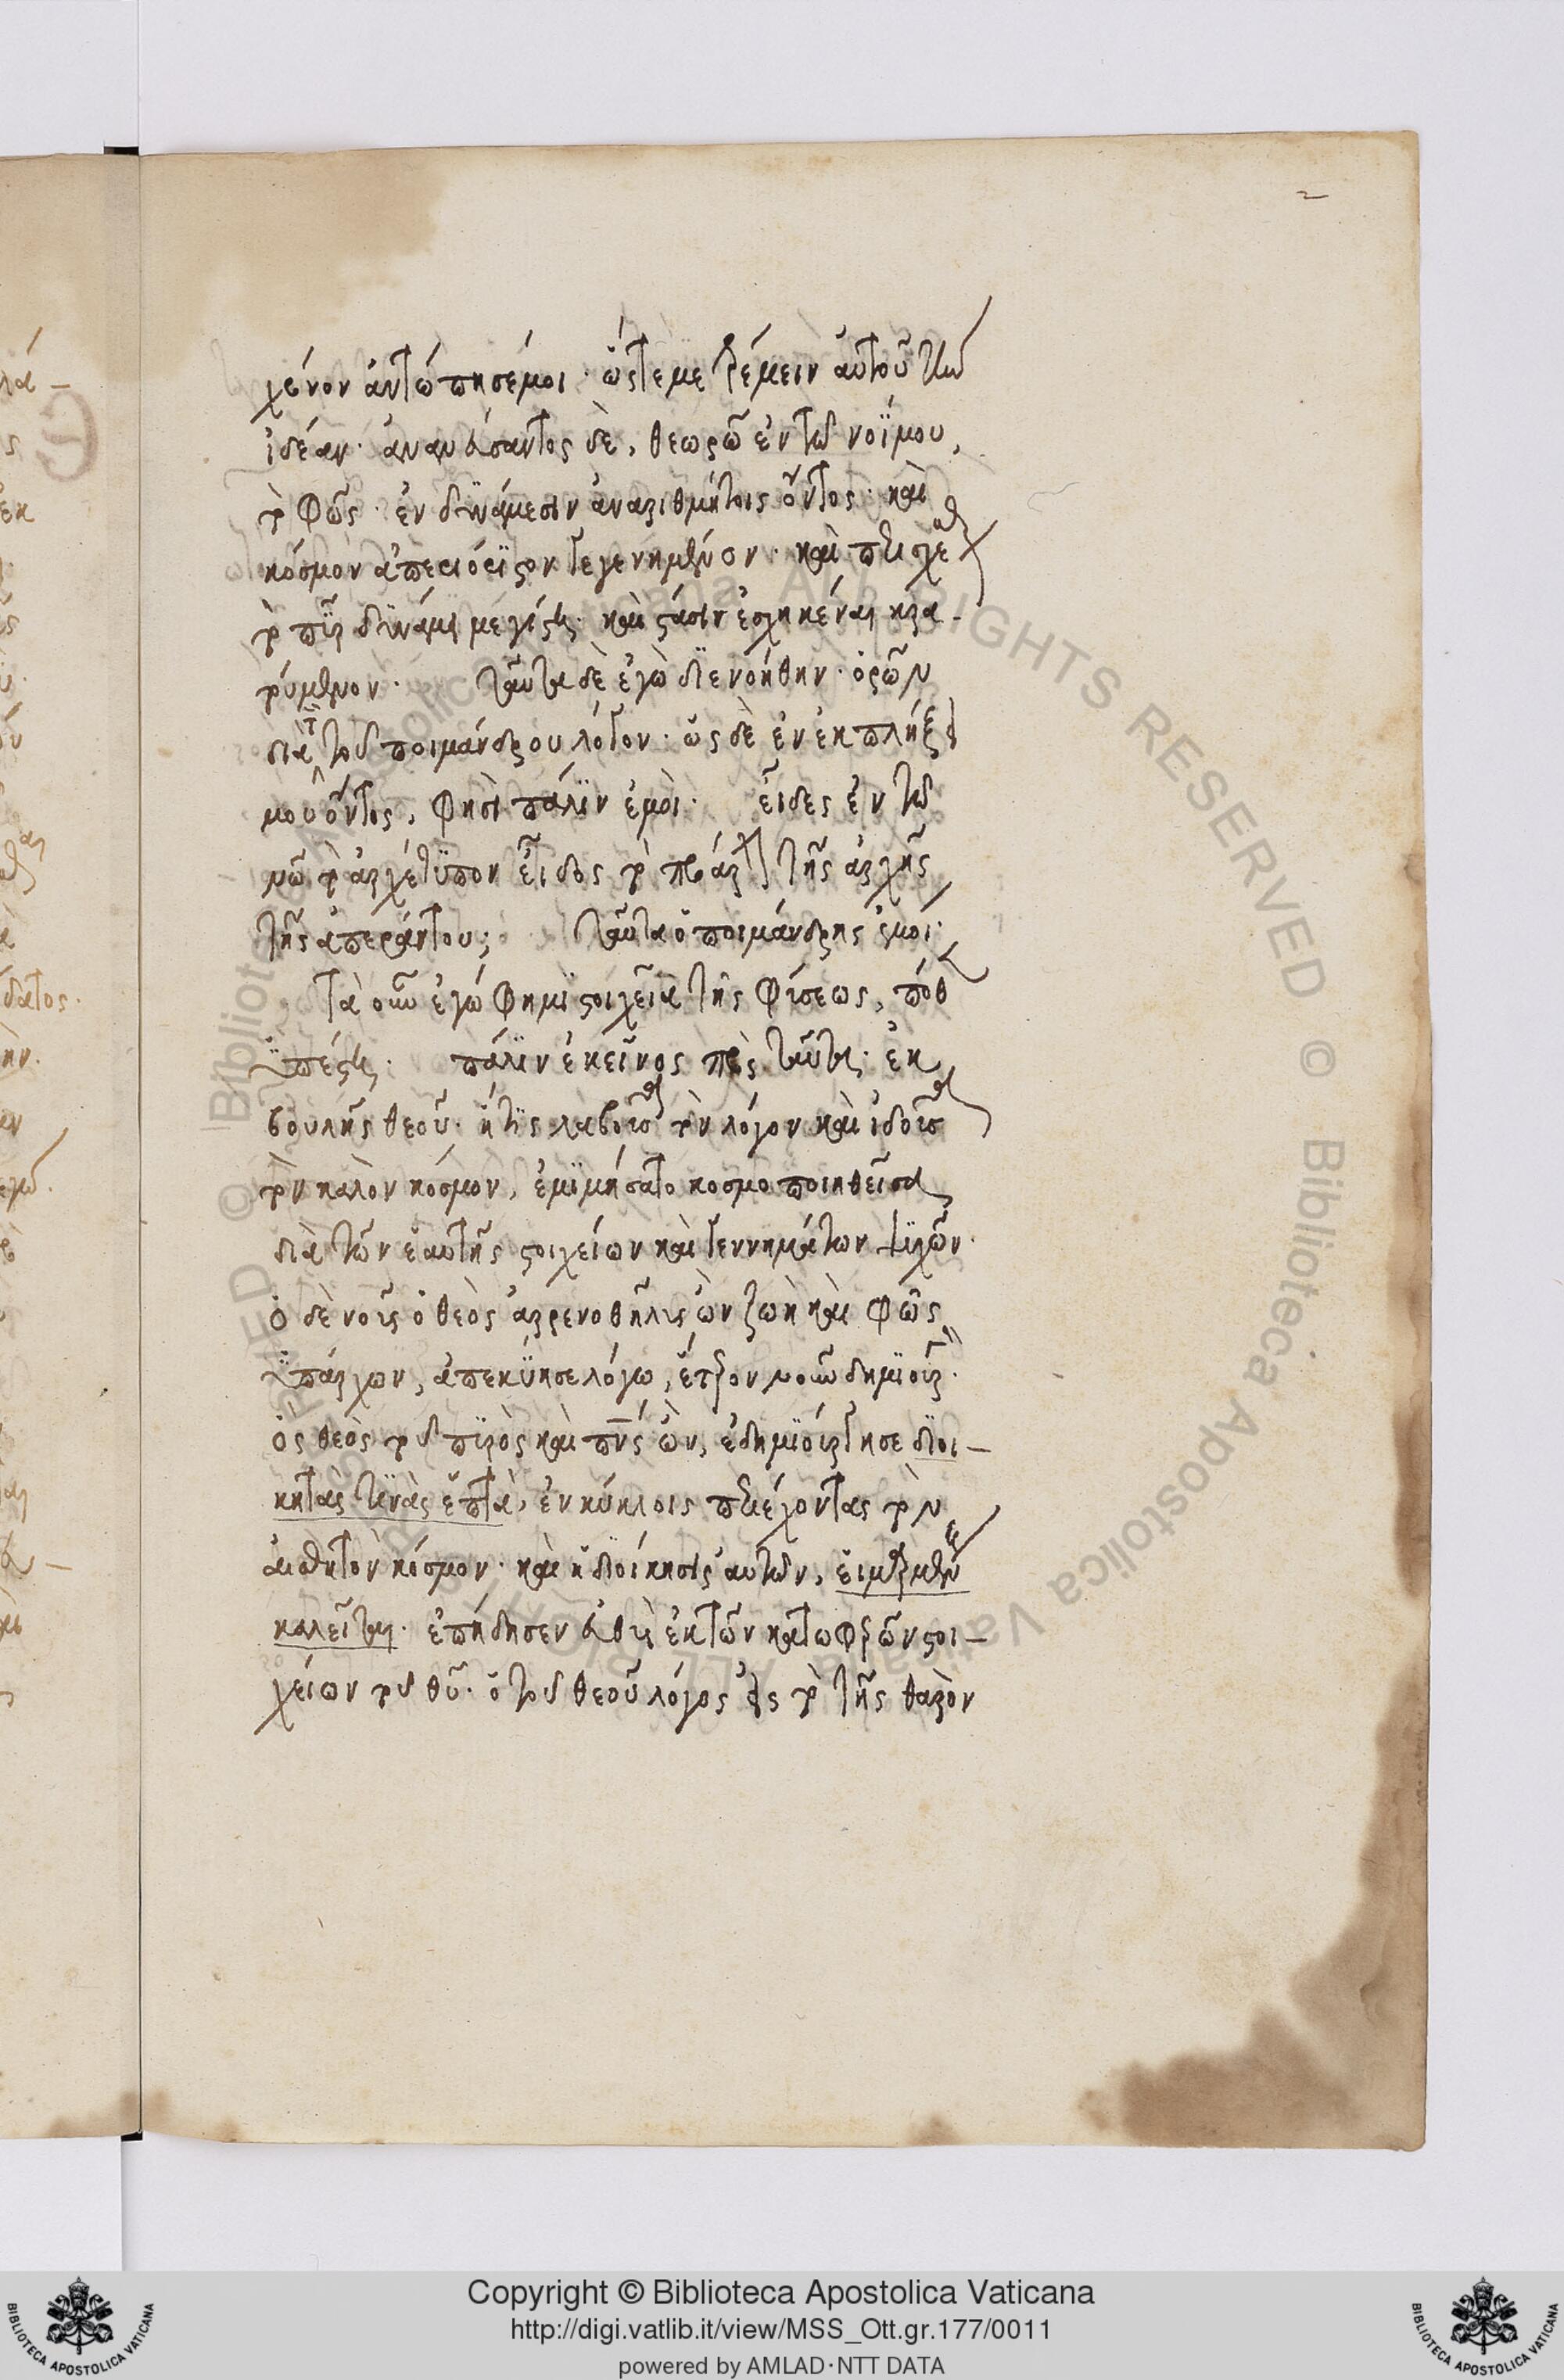 2
χρόνον ἀντώπησέ μοι· ὥστε με τρέμειν αὐτοῦ τὴν
ἰδέαν· ἀνανεύσαντος δὲ, θεωρῶ ἐν τῶ νοΐ μου,
τὸ φῶς· ἐν δυνάμεσιν ἀναριθμήτοις ὄντος· καὶ
κόσμον ἀπεριόριστον γεγενημένον· καὶ περισχεῖσθαι
τὸ πῦρ δυνάμει μεγίστη· καὶ στάσιν ἐσχηκέναι κρα-
τούμενον· ταῦτα δὲ ἐγὼ διενοήθην· ὁρῶν
διὰ τὸν τοῦ ποιμάνδρου λόγον· ὡς δὲ ἐν ἐκπλήξει
μου ὄντος, φησὶ πάλιν ἐμοὶ· εἶδες ἐν τῶ
νῶ τὸ ἀρχέτυπον εἶδος τὸ προάρχον τῆς ἀρχῆς
τῆς ἀπεράντου; ταῦτα ὁ ποιμάνδρης ἐμοί·
τὰ οὖν ἐγώ φημι στοιχεῖα τῆς φύσεως, πόθεν
ὑπέστη· πάλιν ἐκεῖνος πρὸς ταῦτα· ἐκ
βουλῆς θεοῦ· ἥτις λαβοῦσα τὸν λόγον καὶ ἰδοῦσα
τὸν καλὸν κόσμον, ἐμιμήσατο κοσμοποιηθεῖσα
διὰ τῶν ἑαυτῆς στοιχείων καὶ γεννημάτων ψυχῶν·
ὁ δὲ νοῦς ὁ θεὸς ἀρρενοθῆλυς ὢν ζωὴ καὶ φῶς
ὑπάρχων, ἀπεκύησε λόγω, ἕτερον νοῦν δημιουργόν·
ὃς θεὸς τοῦ πυρὸς καὶ πνς ὢν, ἐδημιούργησε διοι-
κητὰς τινὰς ἑπτὰ, ἐν κύκλοις περιέχοντας τὸν
αἰσθητὸν κόσμον· καὶ ἡ διοίκησις αὐτῶν, εἱμαρμένη
καλεῖται· ἐπήδησεν εὐθὺς ἐκ τῶν κατωφερῶν στοι-
χείων τοῦ θῦ· ὁ τοῦ θεοῦ λόγος εἰς τὸ τῆς θαρὸν
Copyright © Biblioteca Apostolica Vaticana
http://digi.vatlib.it/view/MSS_Ott.gr.177/0011
powered by AMLAD·NTT DATA